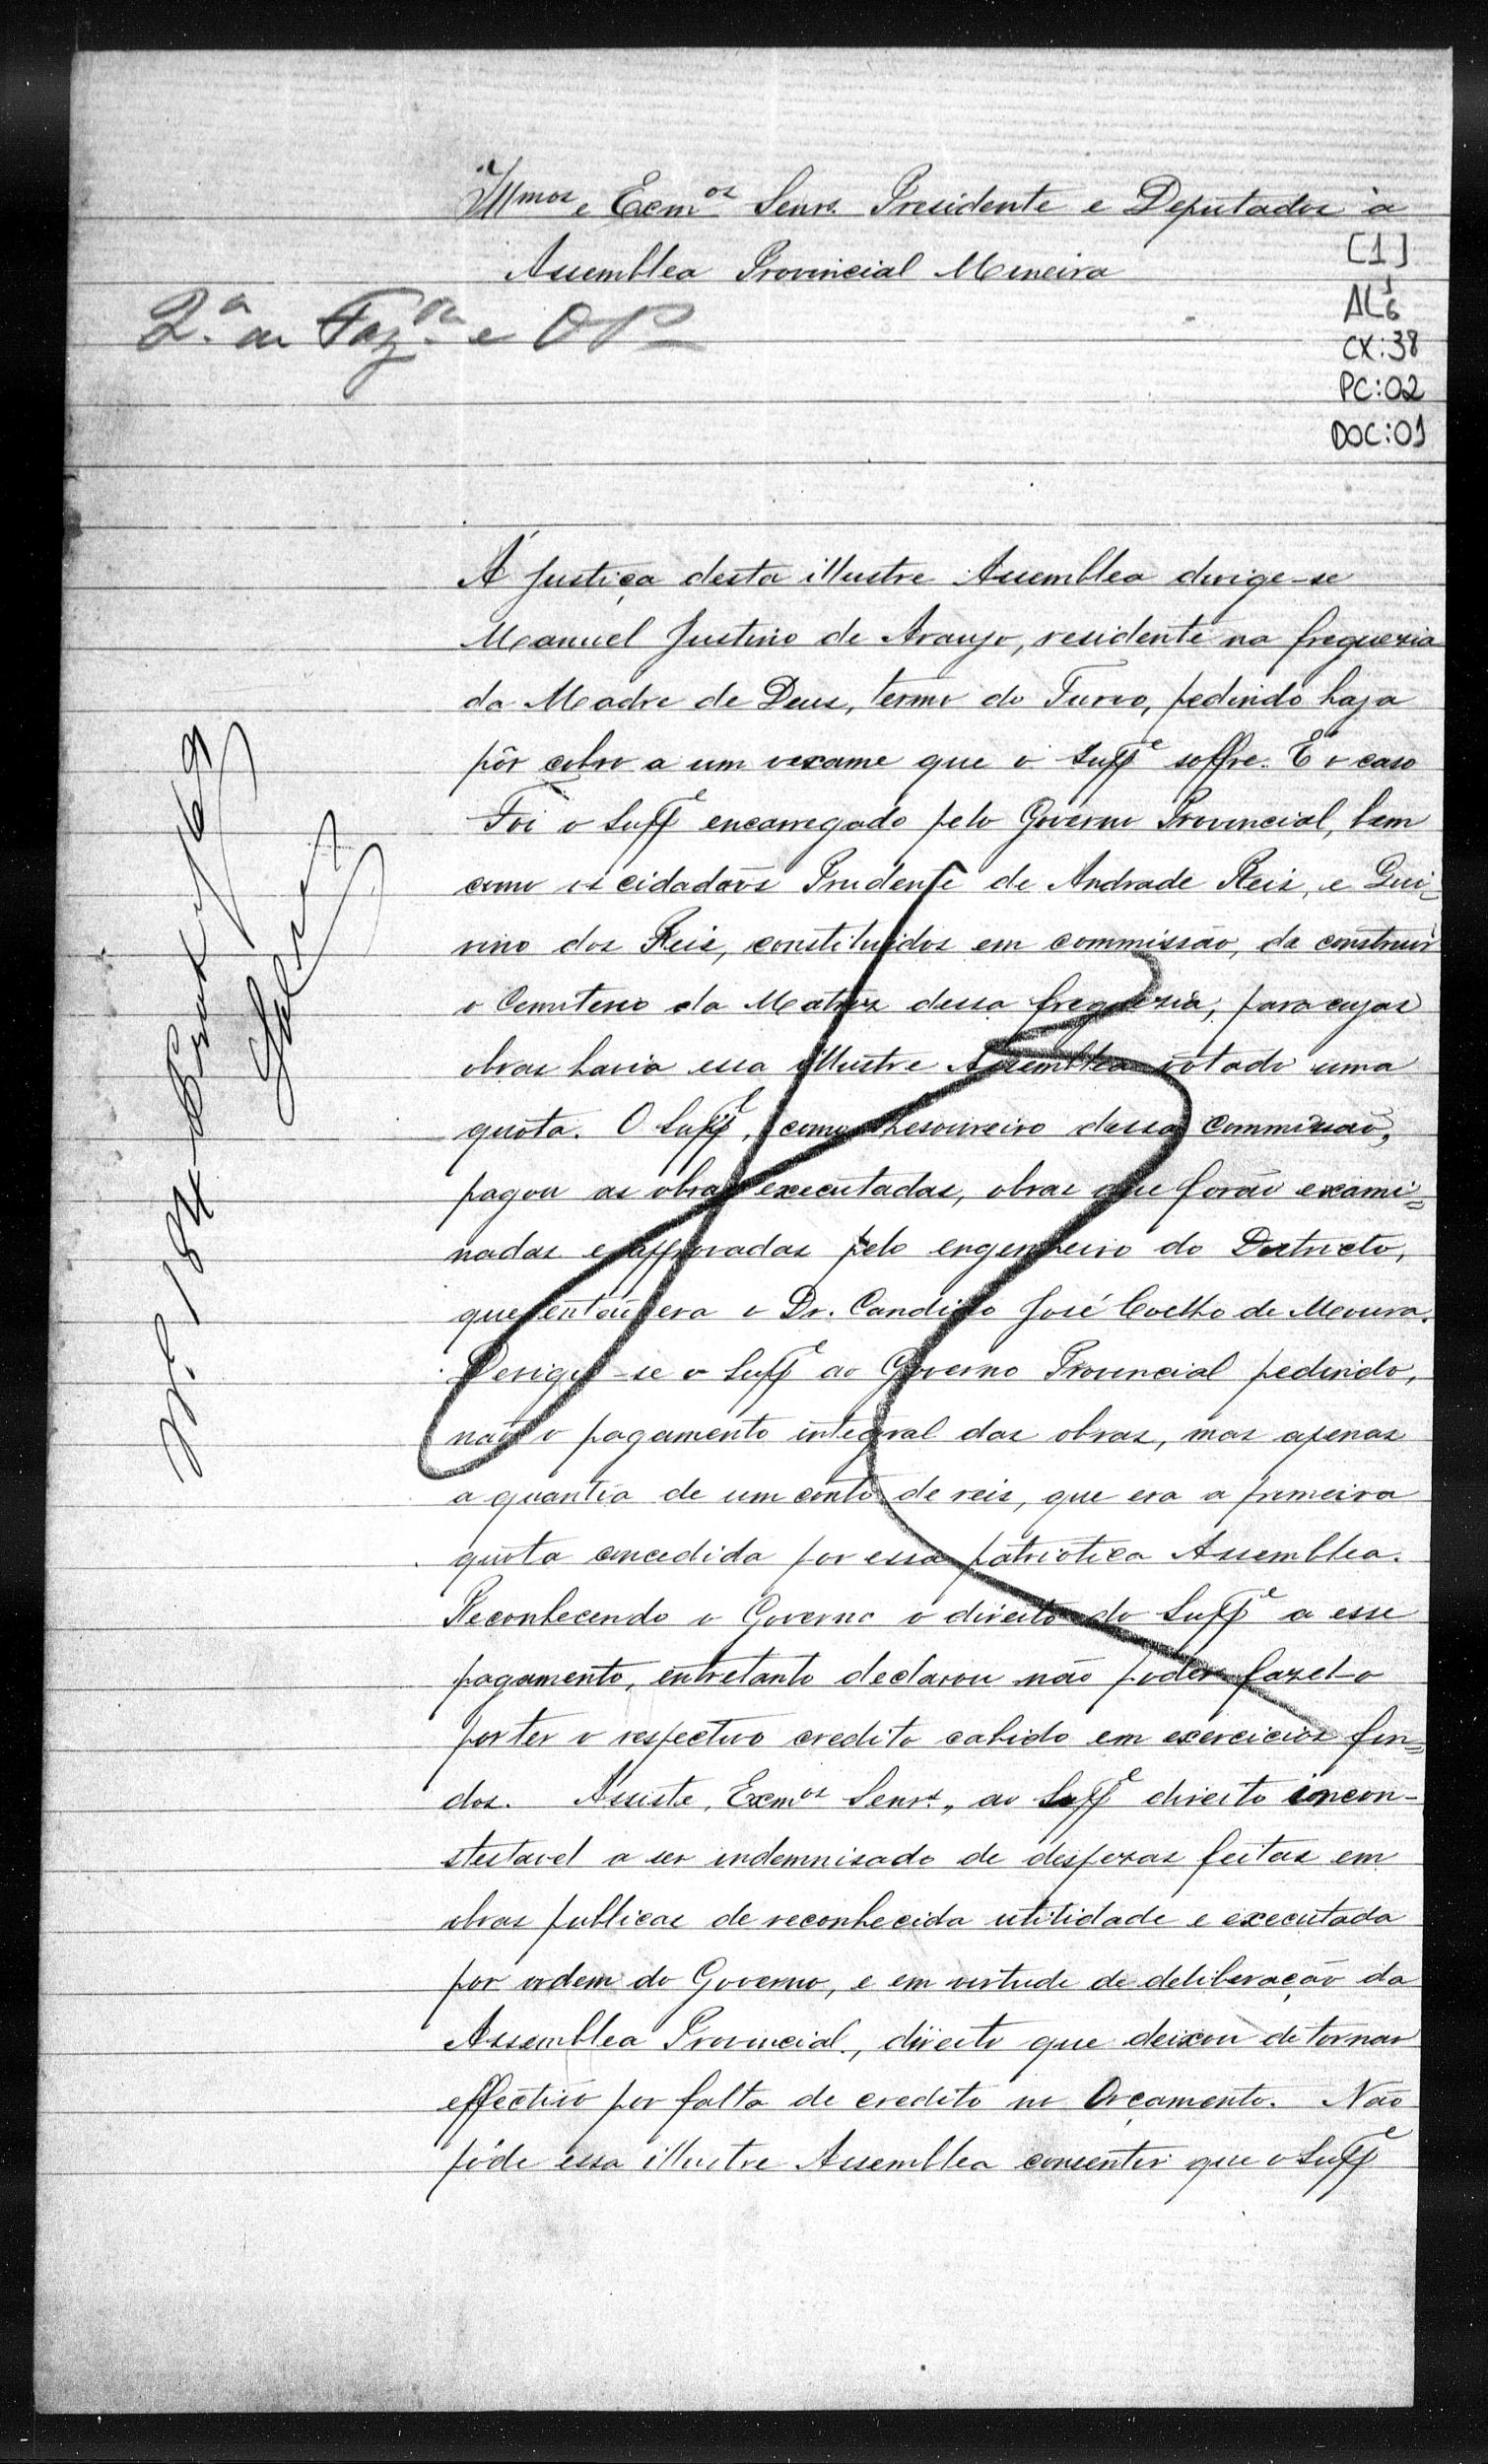 Illmos e Exmos Senrs. Presidente e Deputados à
Assemblea Provincial Mineira
[1]
AL
CX:38
PC:02
DOC:01
2.ª de Faz.da e OP
A justiça desta illustre Assemblea dirige-se
Manuel Justino de Araujo, residente na freguezia
da Madre de Deus, termo do Turvo, pedindo haja
pôr cobro a um vexame que o Suppe soffre. É o caso
Foi o Suppe encarregado pelo Governo Provincial, bem
como os cidadaõs Prudente de Andrade Reis, e Qui-
rino dos Reis, constituidos em commissão, da construir
o Cemiterio da Matriz dessa freguezia, para cujas
obras havia essa illustre Assemblea votado uma
quota. O Suppe, como thesoureiro dessa Commissaõ,
pagou as obras executadas, obras que foraõ exami=
nadas e approvadas pelo engenheiro do Districto,
que entaõ era o Dr. Candido José Coelho de Moura.
Derigio-se o Suppe ao Governo Provincial pedindo,
naõ o pagamento integral das obras, mas apenas
a quantia de um conto de reis, que era a primeira
quota concedida por essa patriotica Assemblea.
Reconhecendo o Governo o direito do Suppe a esse
pagamento, entretanto declarou não poder fazel-o
por ter o respectivo credito cahido em exercicios fin=
dos. Assiste, Exmos Senrs., ao Suppe direito incon-
stestavel a ser indemnisado de despezas feitas em
obras publicas de reconhecida utilidade e executada
por ordem do Governo, e em virtude de deliberação da
Assemblea Provincial, direito que deixou de tornar
effectivo por falta de credito no Orçamento. Não
póde essa illustre Assemblea consentir que o Suppe
Nº 184